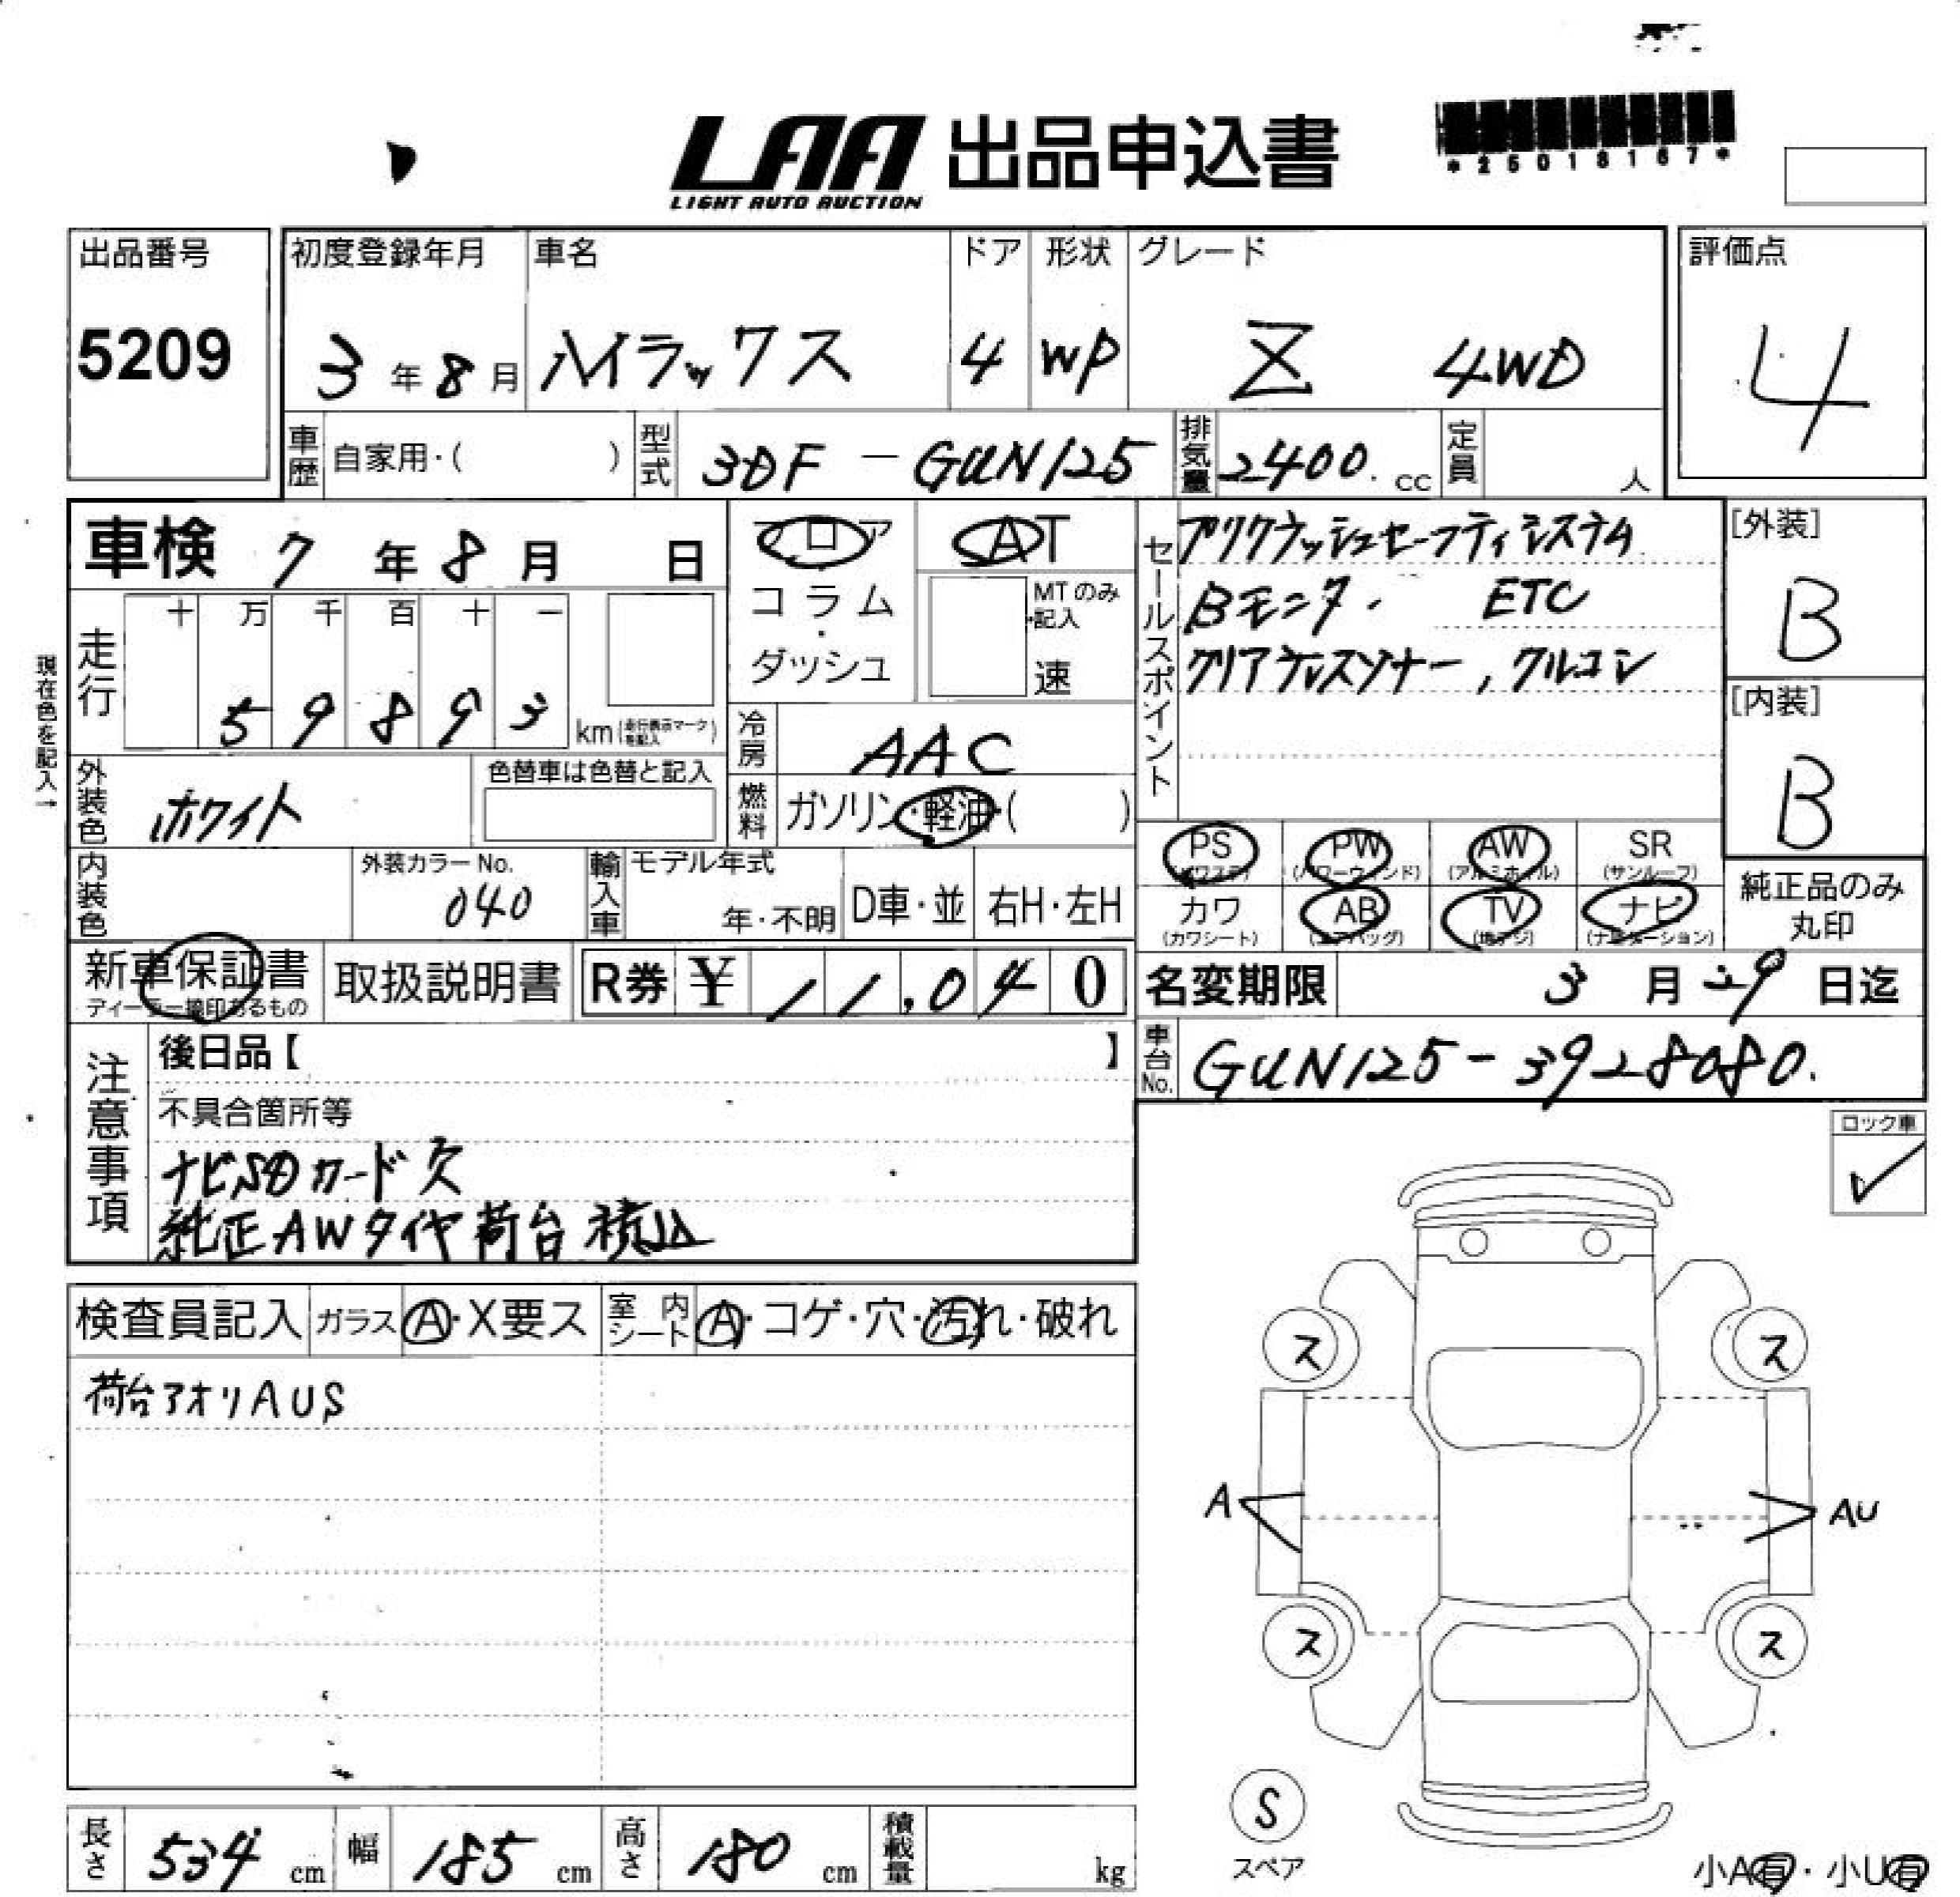 LAA 出品申込書
LIGHT AUTO AUCTION
*25018167*
出品番号
5209
初度登録年月
3年8月
車名
ハイラックス
ドア
4
形状
WP
グレード
Z 4WD
評価点
4
車歴
自家用・( )
型式
3DF-GUN125
排気量
2400.cc
定員
人
車検 7年8月 日
フロア
コラム・ダッシュ
AT
MTのみ記入
速
セールスポイント
プリクラッシュセーフティシステム
Bモニター. ETC
クリアランスソナー,クルコン
[外装]
B
[内装]
B
現在色を記入→
走行
十 万 千 百 十 一
5 9 8 9 3
km(走行表示マークを記入)
冷房
AAC
外装色
ホワイト
色替車は色替と記入
燃料
ガソリン・軽油・( )
PS PW AW SR
(パワステ) (パワーウィンド) (アルミホイル) (サンルーフ)
カワ AB TV ナビ
(カワシート) (エアバッグ) (地デジ) (ナビゲーション)
純正品のみ丸印
内装色
外装カラーNo.
040
輸入車
モデル年式
年・不明
D車・並
右H・左H
新車保証書
ディーラー捺印あるもの
取扱説明書
R券 ¥ 11,040
名変期限 3月29日迄
車台No.
GUN125-3928080.
注意事項
後日品【 】
不具合箇所等
ナビSDカード欠
純正AWタイヤ荷台積込
ロック車
検査員記入
ガラス
A・X要ス
室内シート
A・コゲ・穴・汚れ・破れ
荷台アオリAUS
ス ス
A AU
ス ス
S
スペア
小A有・小U有
長さ 534 cm
幅 185 cm
高さ 180 cm
積載量 kg